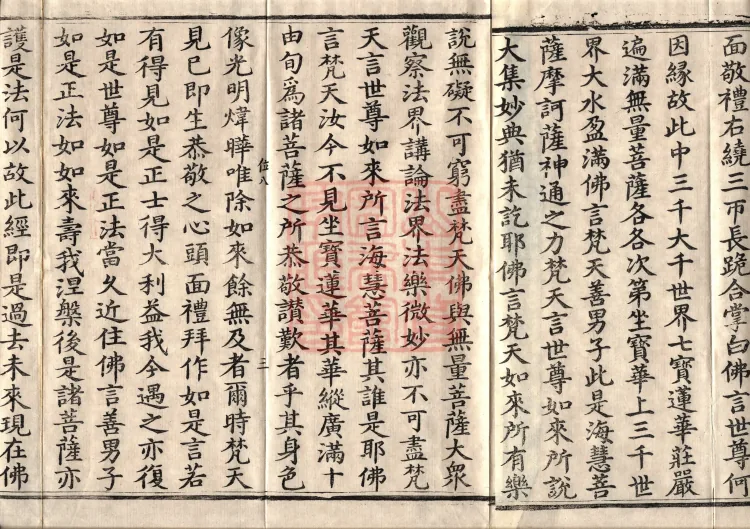 面敬禮右繞三帀長跪合掌白佛言世尊何
因緣故此中三千大千世界七寶蓮華莊嚴
遍滿無量菩薩各各次第坐寶華上三千世
界大水盈滿佛言梵天善男子此是海慧菩
薩摩訶薩神通之力梵天言世尊如來所說
大集妙典猶未訖耶佛言梵天如來所有樂
說無礙不可窮盡梵天佛與無量菩薩大衆
觀察法界講論法界法樂微妙亦不可盡梵
天言世尊如來所言海慧菩薩其誰是耶佛
言梵天汝今不見坐寶蓮華其華縱廣滿十
由旬爲諸菩薩之所恭敬讚歎者乎其身色
位八
三
像光明煒曄唯除如來餘無及者爾時梵天
見已即生恭敬之心頭面禮拜作如是言若
有得見如是正士得大利益我今遇之亦復
如是世尊如是正法當久近住佛言善男子
如是正法如如來壽我涅槃後是諸菩薩亦
護是法何以故此經即是過去未來現在佛